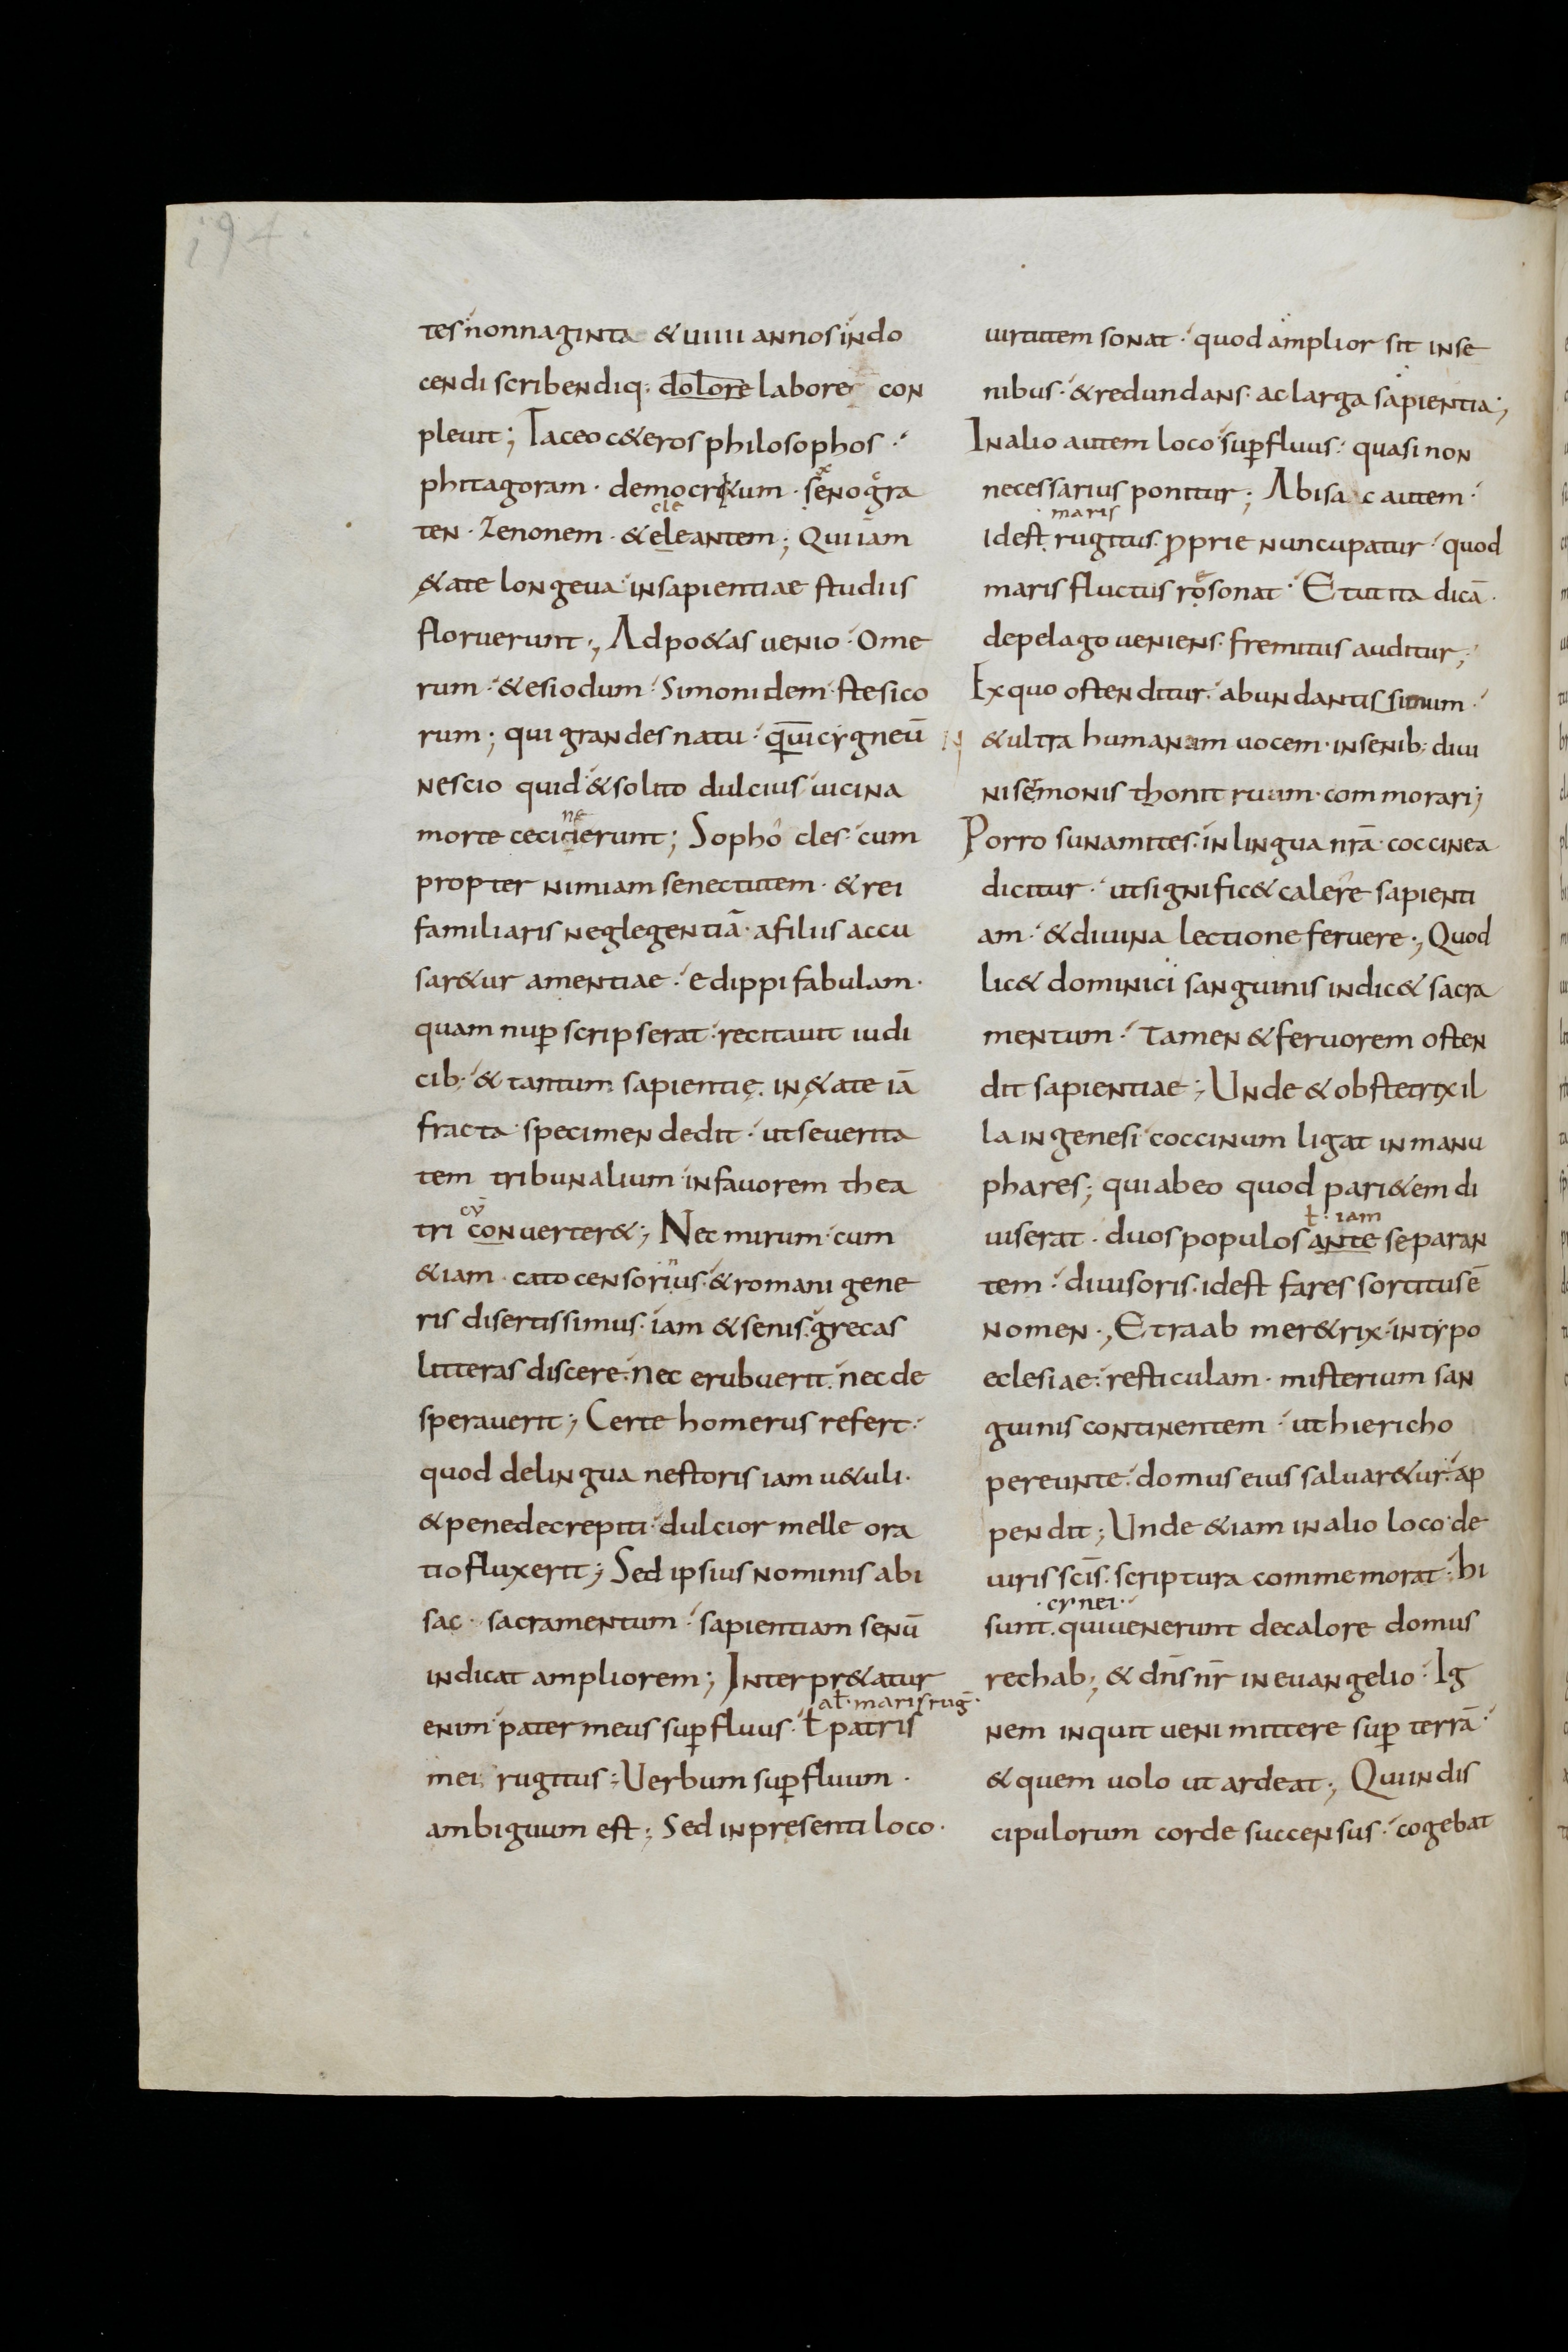 194.
tes nonnaginta & uiiii annos indo
cendi scribendiq; dolore labore con
pleuit; Taceo c&eros philosophos
phitagoram · democr&um · senogra
ten · Zenonem · & eleantem; Qui iam
&ate longeua insapientiae studiis
floruerunt; Ad po&as uenio · Ome
rum · & esiodum · Simonidem · stesico
rum; qui grandes natu · quī cygneū
nescio quid & solito dulcius uicina
morte cecinierunt; Sopho cles · cum
propter nimiam senectutem · & rei
familiaris neglegentiā · afiliis accu
sar&ur amentiae · edippi fabulam ·
quam nup scripserat · recitauit iudi
cib; & tantum sapientię in &ate iā
fracta specimen dedit · ut seuerita
tem tribunalium infauorem thea
cū
tri conuerter&; Nec mirum · cum
&iam · cato censorius · & romani gene
ris disertissimus · iam & senis · grecas
litteras discere · nec erubuerit · nec de
sperauerit; Certe homerus refert ·
quod delingua nestoris iam u&uli ·
& penedecrepiti · dulcior melle ora
tio fluxerit; Sed ipsius nominis abi
sac · sacramentum · sapientiam senū
indicat ampliorem; Interpr&atur
al· maris rug̅ ·
enim pater meus supfluus · ł patris
mei rugitus; Uerbum supfluum ·
ambiguum est; Sed inpresenti loco ·
uirtutem sonat · quod amplior sit inse
nibus · & redundans · ac larga sapientia;
In alio autem loco supfluus · quasi non
necessarius ponitur; Abisa c autem ·
· maris
idest rugitus · proprie nuncupatur · quod
maris fluctus rosonat · Et ut ita dicā ·
depelago ueniens · fremitus auditur;
Ex quo ostenditur · abundantissimum ·
& ultra humanam uocem · insenib; diui
ni semonis thonitruum · commorari;
Porro sunamites · in lingua nrā · coccinea
dicitur · ut signific& calere sapienti
am · & diuina lectione feruere; Quod
lic& dominici sanguinis indic& sacra
mentum · tamen & feruorem osten
dit sapientiae; Unde & obstetrix il
la in genesi coccinum ligat in manu
phares; qui abeo quod pari&em di
ł · iam
uiserat · duos populos ante separan
tem · diuisoris · idest fares sortitus ē
nomen; Et raab mer&rix · in typo
eclesiae · resticulam · misterium san
guinis continentem · ut hiericho
pereunte · domus eius saluar&ur · ap
pendit; Unde &iam in alio loco · de
uiris scīs · scriptura commemorat · hi
· cynei ·
sunt · qui uenerunt decalore domus
rechab; & dn̄s nr̄ in euangelio · Ig
nem inquit ueni mittere sup terrā ·
& quem uolo ut ardeat; Qui in dis
cipulorum corde succensus · cogebat